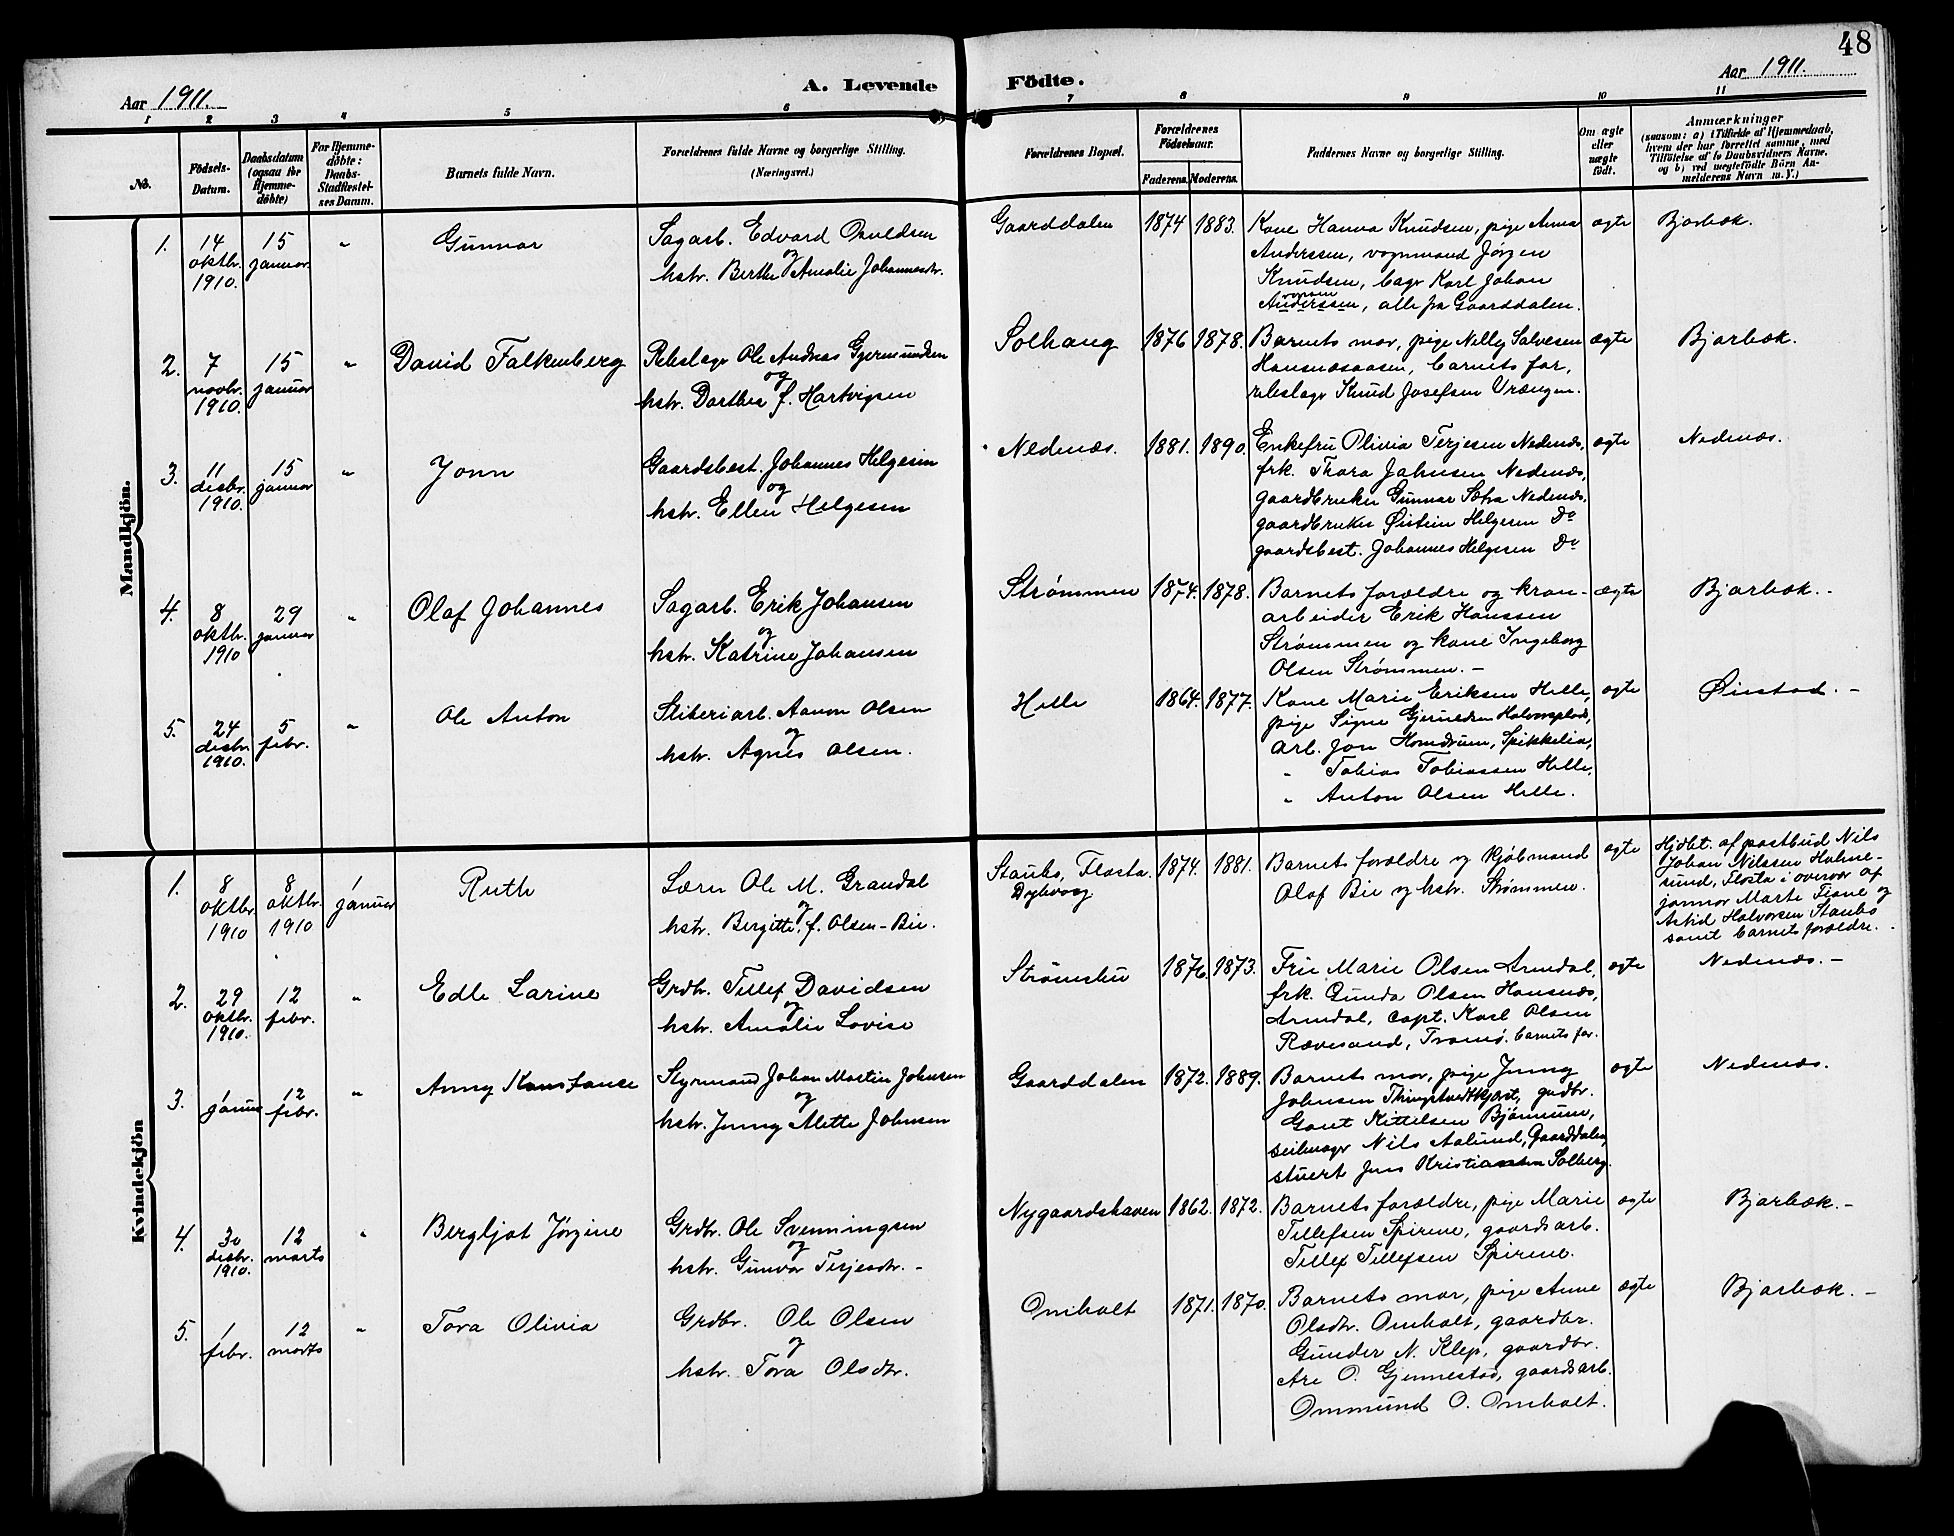 48
Aar 1911.
A. Levende
Födte.
Aar 1911.
1 2 3 4 5 6 7 8 9 10 11
No.
Födsels-
Datum.
Daabsdatum
(ogsaa for
Hjemme-
döbte)
For Hjemme-
döbte:
Daabs-
Stadfæstel-
ses Datum.
Barnets fulde Navn.
Forældrenes fulde Navne og borgerlige Stilling.
(Næringsvei.)
Forældrenes Bopæl.
Forældrenes
Födselsaar.
Faderens. Moderens.
Faddernes Navne og borgerlige Stilling.
Om ægte
eller
uægte
födt.
Anmærkninger
(saasom: a) i Tilfælde af Hjemmedaab,
hvem der har forrettet samme, med
Tilföielse af to Daabsvidners Navne,
og b) ved uegtefödte Börn An-
melderens Navn m. V.)
Mandkjön.
1.
14
oktbr.
1910.
15
januar.
"
Gunnar
Sagarb. Edvard
og
hstr. Berthe Amalie Johannesdtr.
Gaarddalen
1874
1883.
Kone Hanna Knudsen, pige Anna
Anderssen, vognmand Jörgen
Knudsen, bager Karl Johan
Anderssen, alle fra Gaarddalen.
ægte
Bjorbæk.
2.
7
novbr.
1910.
15
januar
"
David Falkenberg
Rebslager Ole Andreas Gjermundsen
og
hstr. Dorthea f. Hartvigsen
Solhaug
1876
1878.
Barnets mor, pige Nelly Salvesen
Hansnæsaasen, barnets far,
rebslager Knud Josefsen Vrængen.
ægte
Bjorbæk.
3.
11
desbr.
1910.
15
januar
"
Jonn
Gaardsbest. Johannes Helgesen
og
hstr. Ellen Helgesen
Nedenæs.
1881.
1890.
Enkefru Olivia Terjesen Nedenæs,
frk. Thora Jahnsen Nedenæs,
gaardbruker Gunnar Nedenæs,
gaardbruker Øistein Helgesen Do
gaardsbest. Johannes Helgesen Do
ægte
Nedenæs.
4.
8
oktbr.
1910
29
januar
"
Olaf Johannes
Sagarb. Erik Johansen
og
hstr. Katrine Johansen
Strømmen
1874.
1878.
Barnets forældre og kran-
arbeider Erik Hanssen
Strømmen og kone Ingeborg
Olsen Strømmen. -
ægte
Bjorbæk. -
5.
24
desbr.
1910.
5
febr.
"
Ole Anton
Sliberiarb. Aanon Olsen
og
hstr. Agnes Olsen.
Helle
1864.
1877.
Kone Marie Eriksen Helle,
pige Signe Gjeruldsen Halvorsplads,
arb. Jon Homdrum, Spikkelia,
" Tobias Tobiassen Helle,
" Anton Olsen Helle.
ægte
Øiestad. -
Kvindekjön
1.
8
oktbr.
1910
8
oktbr.
1910
1
januar
Ruth
Lærer Ole M. Grandal
og
hstr. Bergitte, f. Olsen-Bie.
Staubø, Flosta
Dybvaag
1874.
1881.
Barnets forældre og kjøbmand
Olaf Bie og hstr. Strømmen.
ægte
Hjdbt. af postbud Nils
Johan Nilssen Holme-
sund, Flosta i overvær af
jormor Marte Fiane og
Astrid Halvorsen Staubø
samt barnets forældre.
2.
29
oktbr.
1910.
12
febr.
"
Edle Sarine
Grdbr. Tellef Davidsen
og
hstr. Amalie Lovise
Strømsbu
1876.
1873.
Fru Marie Olsen Arendal,
frk. Gunda Olsen Hansnæs,
Arendal, Capt. Karl Olsen
Rævesand, Tromø. barnets far.
ægte
Nedenæs. -
3.
1
januar
12
febr.
"
Anny Konstance
Styrmand Johan Martin Johnsen
og
hstr. Jenny Alette Johnsen
Gaarddalen
1872.
1889.
Barnets mor, pige Jenny
Johnsen Thingstvedtkjær, grdbr.
Gaut Kittelsen Bjönnum,
seilmager Nils Aalund, Gaarddalen,
stuert Jens Kristiansen Solberg.
ægte
Nedenæs.
4.
30
desbr.
1910.
12
marts
"
Bergljot Jørgine
Grdbr. Ole Svenningsen
og
hstr. Gunvor Terjesdtr. -
Nygaardshaven
1862.
1872.
Barnets forældre, pige Marie
Tellefsen Spirene, gaardsarb.
Tellef Tellefsen Spirene.
ægte
Bjorbæk. -
5.
1
febr.
12
marts
"
Tora Olivia
Grdbr. Ole Olsen
og
hstr. Tora Olsdtr.
Omholt
1871.
1870.
Barnets mor, pige Anne
Olsdtr. Omholt, gaardbr.
Gunder N. Klep, gaardbr.
Are O. Gjennestad, gaardsarb.
Ommund O. Omholt.
ægte
Bjorbæk. -